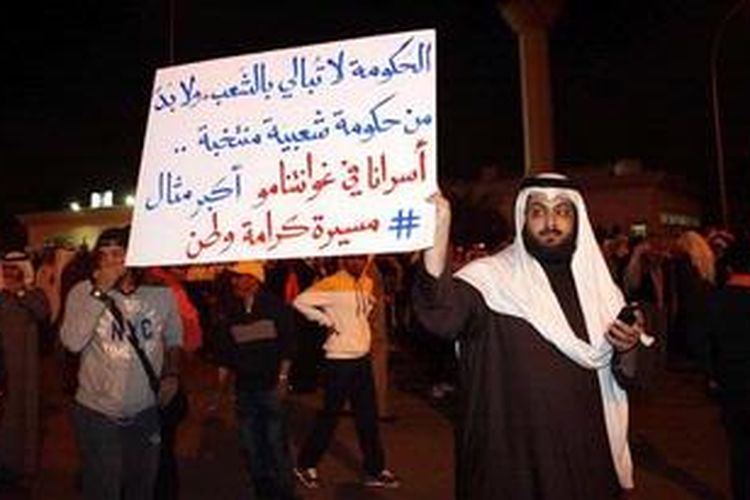 الحكومة لا تبالي بالشعب، ولا بدَّ
من حكومة شعبية منتخبة ..
أسرانا في غوانتنامو أكبر مثال
# مسيرة كرامة وطن
NYC